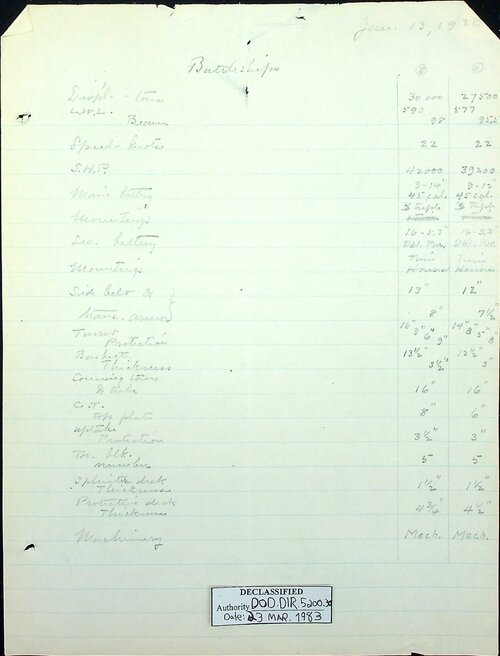 Jan. 13, 193
Battleships
Ⓔ Ⓓ
Displ. - tons 30000 27500
L.W.L. 590 577
Beam 98 92.5
Speed - knots 22 22
S.H.P. 42000 39200
Main battery 9-14" 9-12"
45 cal. 45 cal.
Mountings 3 triple 3 triple
Sec. battery 16-5.2" 16-5.2"
Dbl. Pur. Dbl. Pur.
Mountings Twin Houses Twin Houses
Side belt & } 13" 12"
Trans. armor 8" 7½"
Turret Protection 16" 8" 6" 9" 14" 8" 5" 8"
Barbette Thickness 13½" 3½" 12½" 3"
Conning tower & tube 16" 16"
C.T. top plate 8" 6"
Uptake Protection 3½" 3"
Tor. blk. number 5 5
Splinter deck Thickness 1½" 1½"
Protective deck Thickness 4¾" 4½"
Machinery Mech. Mech.
DECLASSIFIED
Authority DOD.DIR.5200.30
Date: 23 MAR. 1983